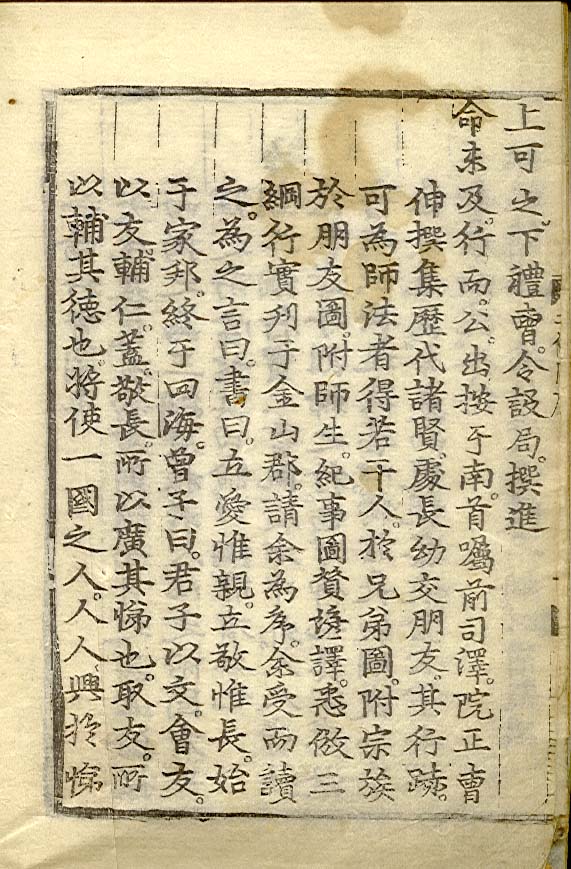 上可之。下禮曹。令設局。撰進
命未及。行而。公。出按于南。首囑前司譯。院正曹
伸撰集歷代諸賢。處長幼交朋友。其行跡。
可為師法者得若干人。於兄弟圖。附宗族
於朋友圖。附師生。紀事圖贊諺譯。悉倣三
綱行實刋于金山郡。請余為序。余受而讀
之。為之言曰。書曰。立愛惟親。立敬惟長。始
于家邦。終于四海。曾子曰。君子以文。會友。
以友。輔仁。蓋。敬長。所以廣其悌也。取友。所
以輔其德也。將使一國之人。人人興於悌